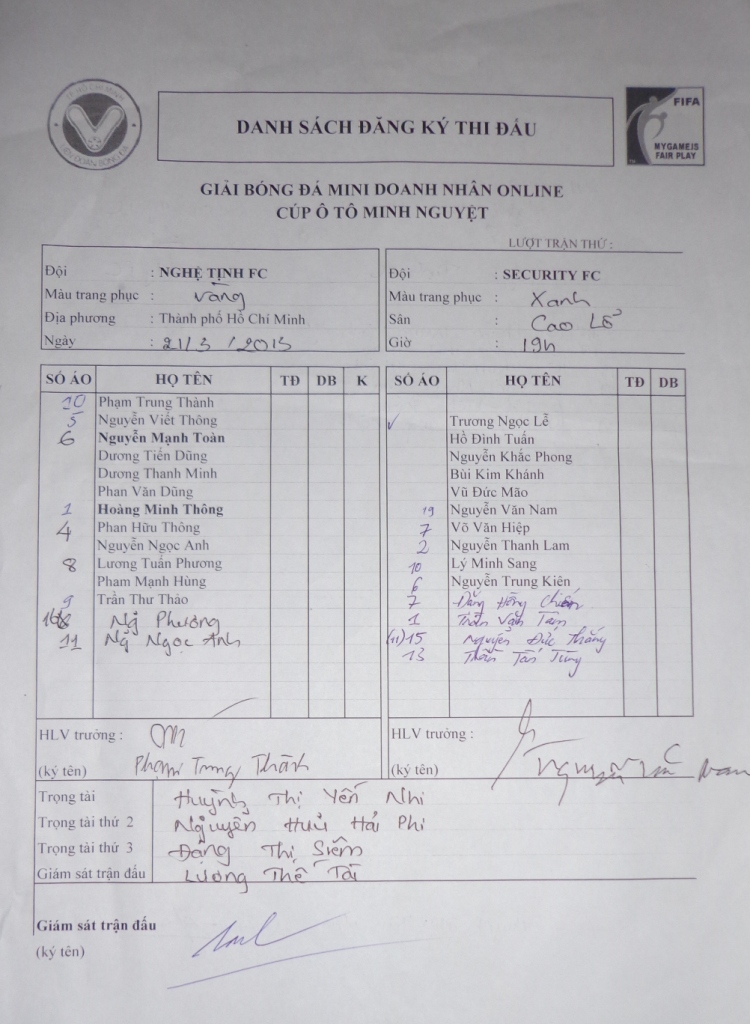 TP HỒ CHÍ MINH
LIÊN ĐOÀN BÓNG ĐÁ
DANH SÁCH ĐĂNG KÝ THI ĐẤU
FIFA
MYGAMEIS
FAIR PLAY
GIẢI BÓNG ĐÁ MINI DOANH NHÂN ONLINE
CÚP Ô TÔ MINH NGUYỆT
LƯỢT TRẬN THỨ :
Đội : NGHỆ TỊNH FC
Màu trang phục : Vàng
Địa phương : Thành phố Hồ Chí Minh
Ngày : 21/3/2015
Đội : SECURITY FC
Màu trang phục : Xanh
Sân : Cao Lỗ
Giờ : 19h
SỐ ÁO HỌ TÊN TĐ DB K
10 Phạm Trung Thành
5 Nguyễn Viết Thông
6 Nguyễn Mạnh Toàn
Dương Tiến Dũng
Dương Thanh Minh
Phan Văn Dũng
1 Hoàng Minh Thông
4 Phan Hữu Thông
Nguyễn Ngọc Anh
8 Lương Tuấn Phương
Pham Mạnh Hùng
9 Trần Thư Thảo
16 Ng Phương
11 Ng Ngọc Anh
SỐ ÁO HỌ TÊN TĐ DB
Trương Ngọc Lễ
Hồ Đình Tuấn
Nguyễn Khắc Phong
Bùi Kim Khánh
Vũ Đức Mão
19 Nguyễn Văn Nam
7 Võ Văn Hiệp
2 Nguyễn Thanh Lam
10 Lý Minh Sang
6 Nguyễn Trung Kiên
7 Đặng Hồng Chiến
1 Trần Văn Tam
(11) 15 Nguyễn Đức Thắng
13 Trần Tấn Tùng
HLV trưởng :
(ký tên) Phạm Trung Thành
HLV trưởng :
(ký tên) Nguyễn Văn Nam
Trọng tài Huỳnh Thị Yến Nhi
Trọng tài thứ 2 Nguyễn Hữu Hải Phi
Trọng tài thứ 3 Đặng Thị Siêm
Giám sát trận đấu Lương Thế Tài
Giám sát trận đấu
(ký tên)